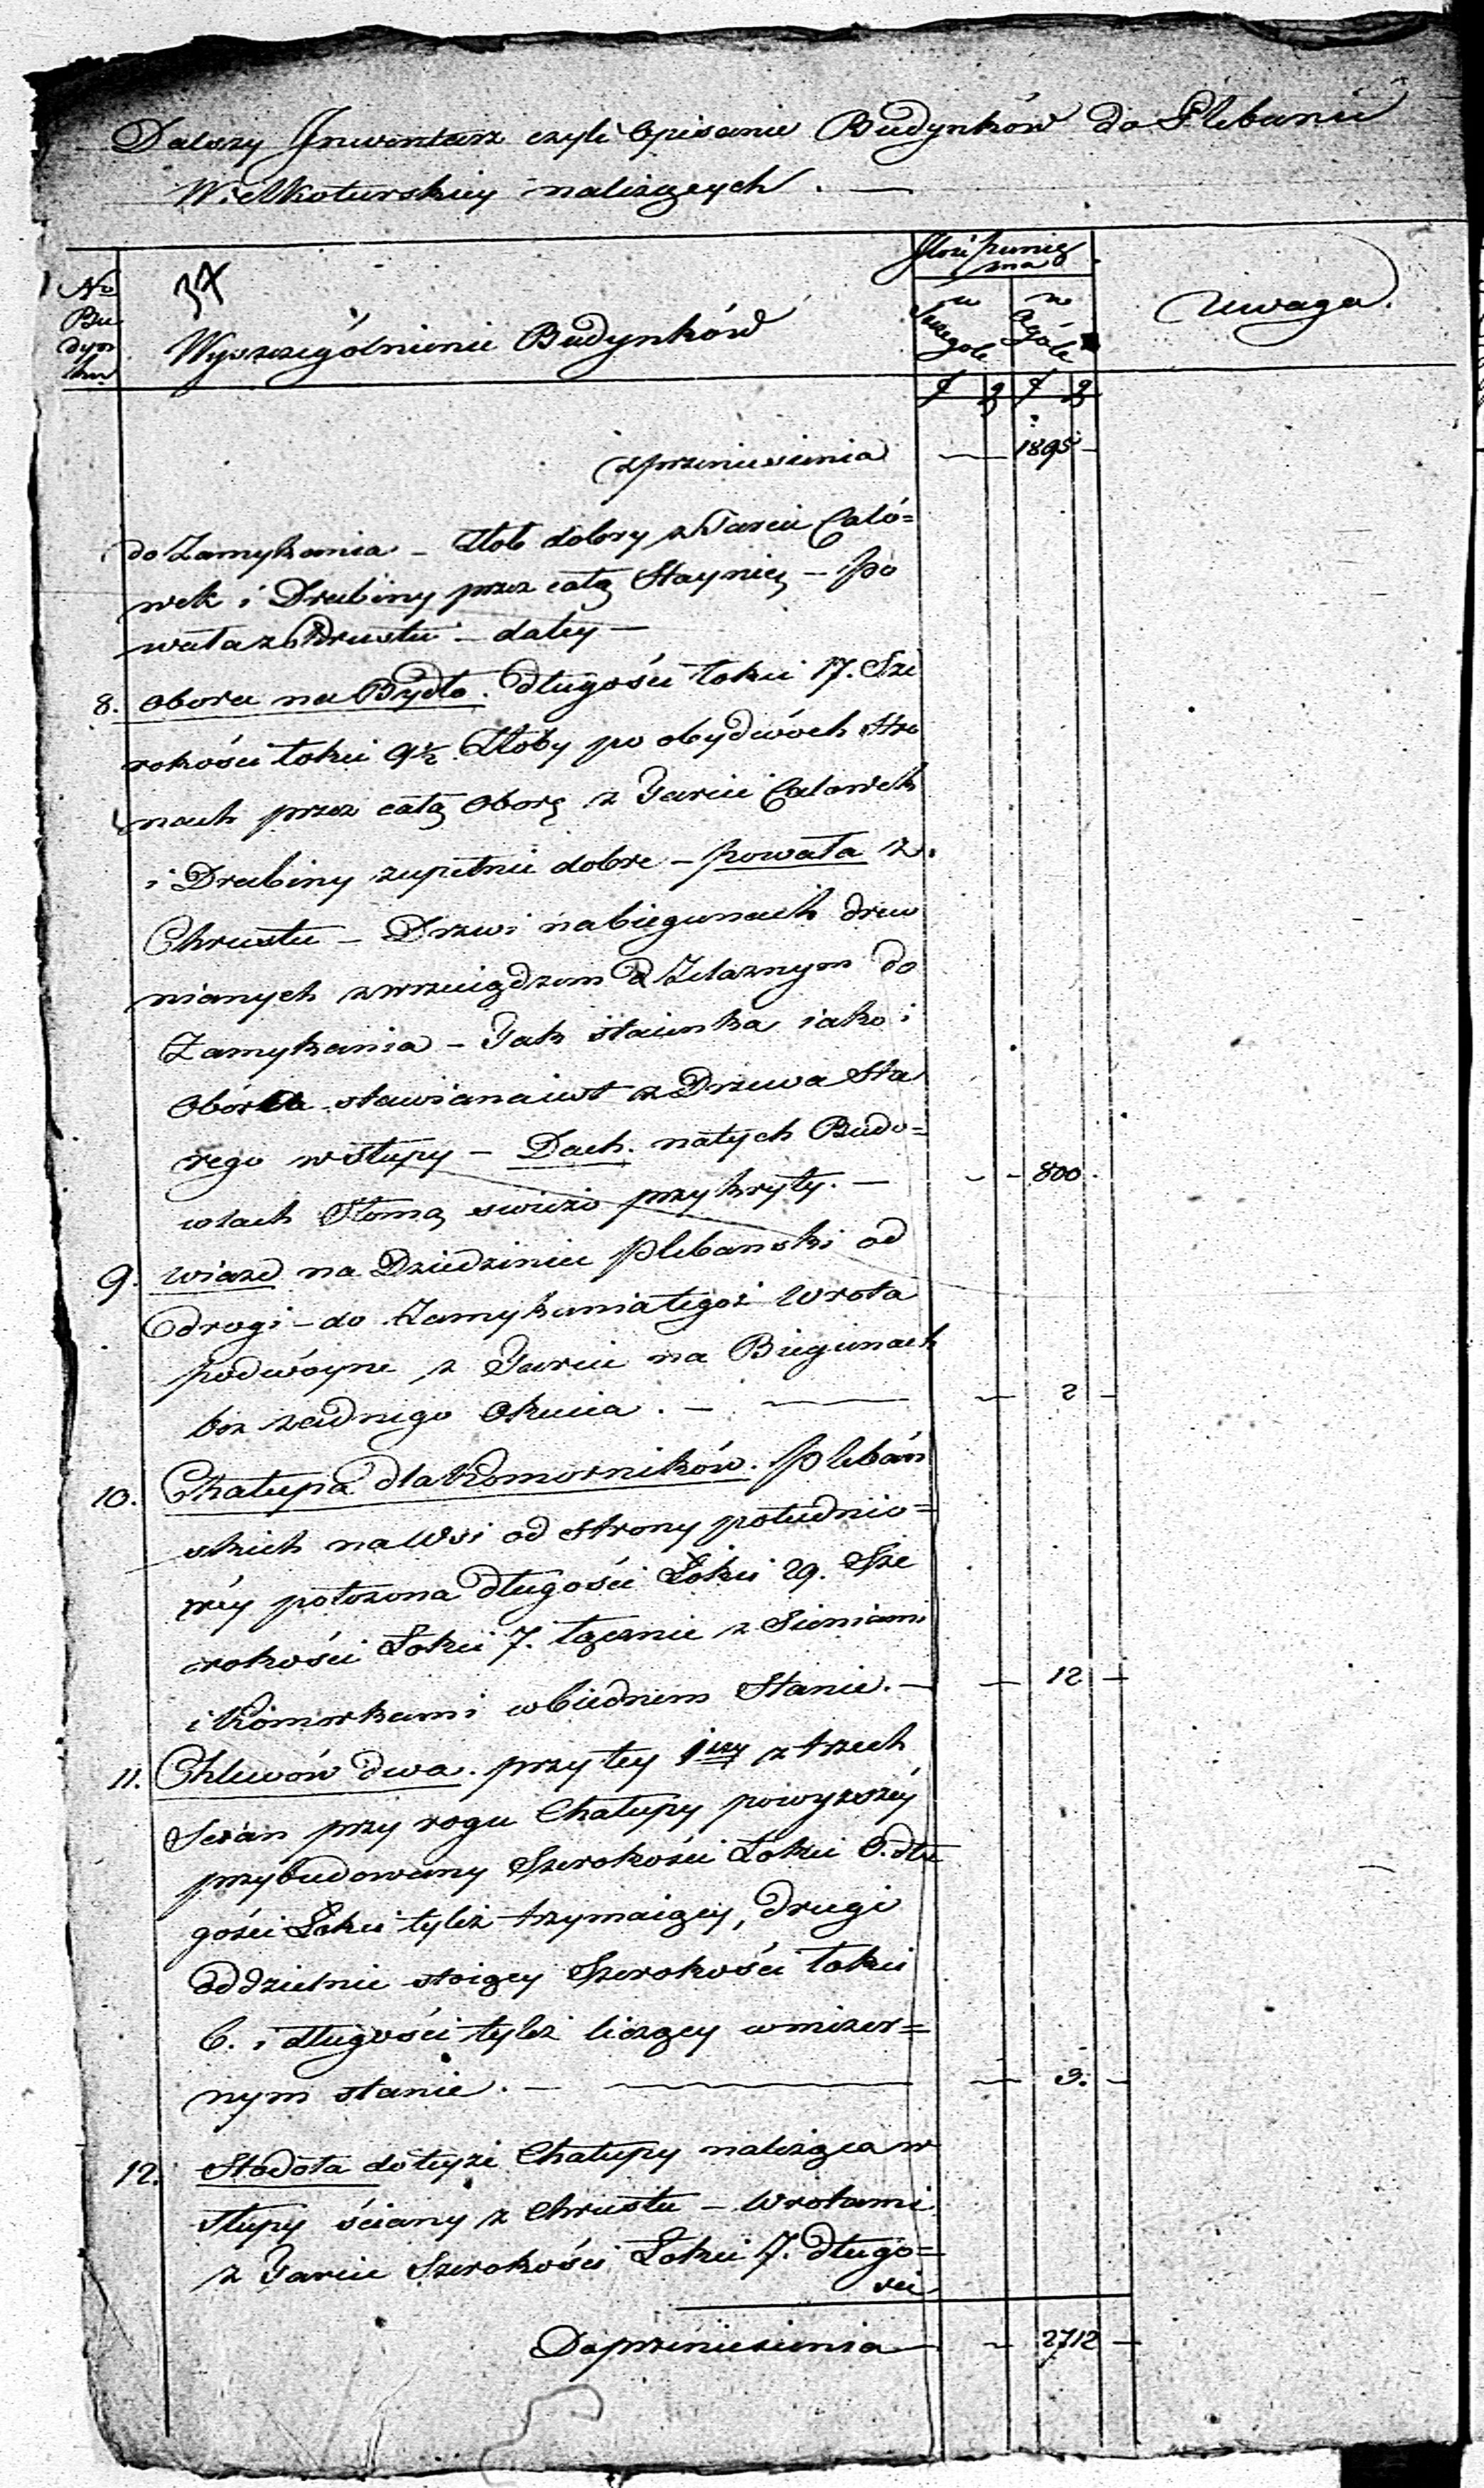 Dalszy Inwentarz czyli Opisanie Budynków do Plebanii
Wielkoturskiey należących. —
No Budynku
37
Wyszczególnienie Budynków
Ilość Pieniężna
w Szczegole
w Ogóle
Uwaga.
f g f g
z przeniesienia — 1895 —
do Zamykania — Złob dobry z Tarcic Caló=
wek i Drabiny przez całą Staynię — po
wała z Chrustu — daley —
8. Obora na Bydło. Długości łokci 17. Sze
rokości łokci 9½ Złoby po obydwóch Stro
nach przez całą Oborę z Tarcic Calowek
i Drabiny zupełnie dobre — powała z
Chrustu — Drzwi na biegunach drew
nianych z wrzeciądzem Zelaznym do
Zamykania — Jak staienka iako i
Obórka stawiana iest z Drzewa Sta
rego w Słupy — Dach na tych Budo=
wlach Słomą swieżo przykryty. — 800.
9. Wiazd na Dziedziniec Plebanski od
drogi — do Zamykania tegoż Wrota
podwóyne z Tarcic na Biegunach
bez żadnego Okucia. — 2 —
10. Chałupa dla Komorników Plebań
skich na Wsi od strony południo=
wéy położona długości Łokci 29. Sze
rokości Łokci 7. łącznie z Sieniami
i Komorkami w biednem Stanie. — 12 —
11. Chlewów dwa. przy tey 1szy z trzech
Scian przy rogu Chałupy powyższéy
przybudowany Szerokości Łokci 3. dłu
gości Łokci tyleż trzymaiący, drugi
oddzielnie stoiący Szerokości łokci
6. i długości tyleż liczący w mizer=
nym stanie. — 3. —
12. Stodoła do teyże Chałupy należąca w
słupy ściany z Chrustu — Wrotami
z Tarcic Szerokości Łokci 7. długo=
sci
Do przeniesienia — 2712 —